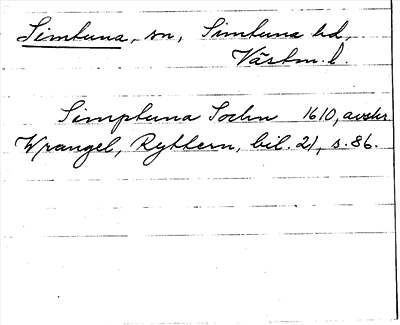 Simtuna, sn, Simtuna hd,
Västm. l.
Simptuna Sochn 1610, avskr.
Wrangel, Ryttern, bil. 21, s. 86.